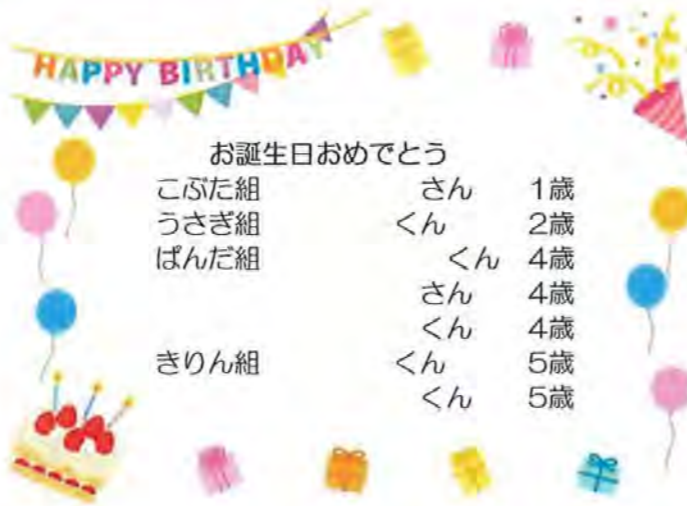 HAPPY BIRTHDAY
お誕生日おめでとう
こぶた組 さん 1歳
うさぎ組 くん 2歳
ぱんだ組 くん 4歳
さん 4歳
くん 4歳
きりん組 くん 5歳
くん 5歳